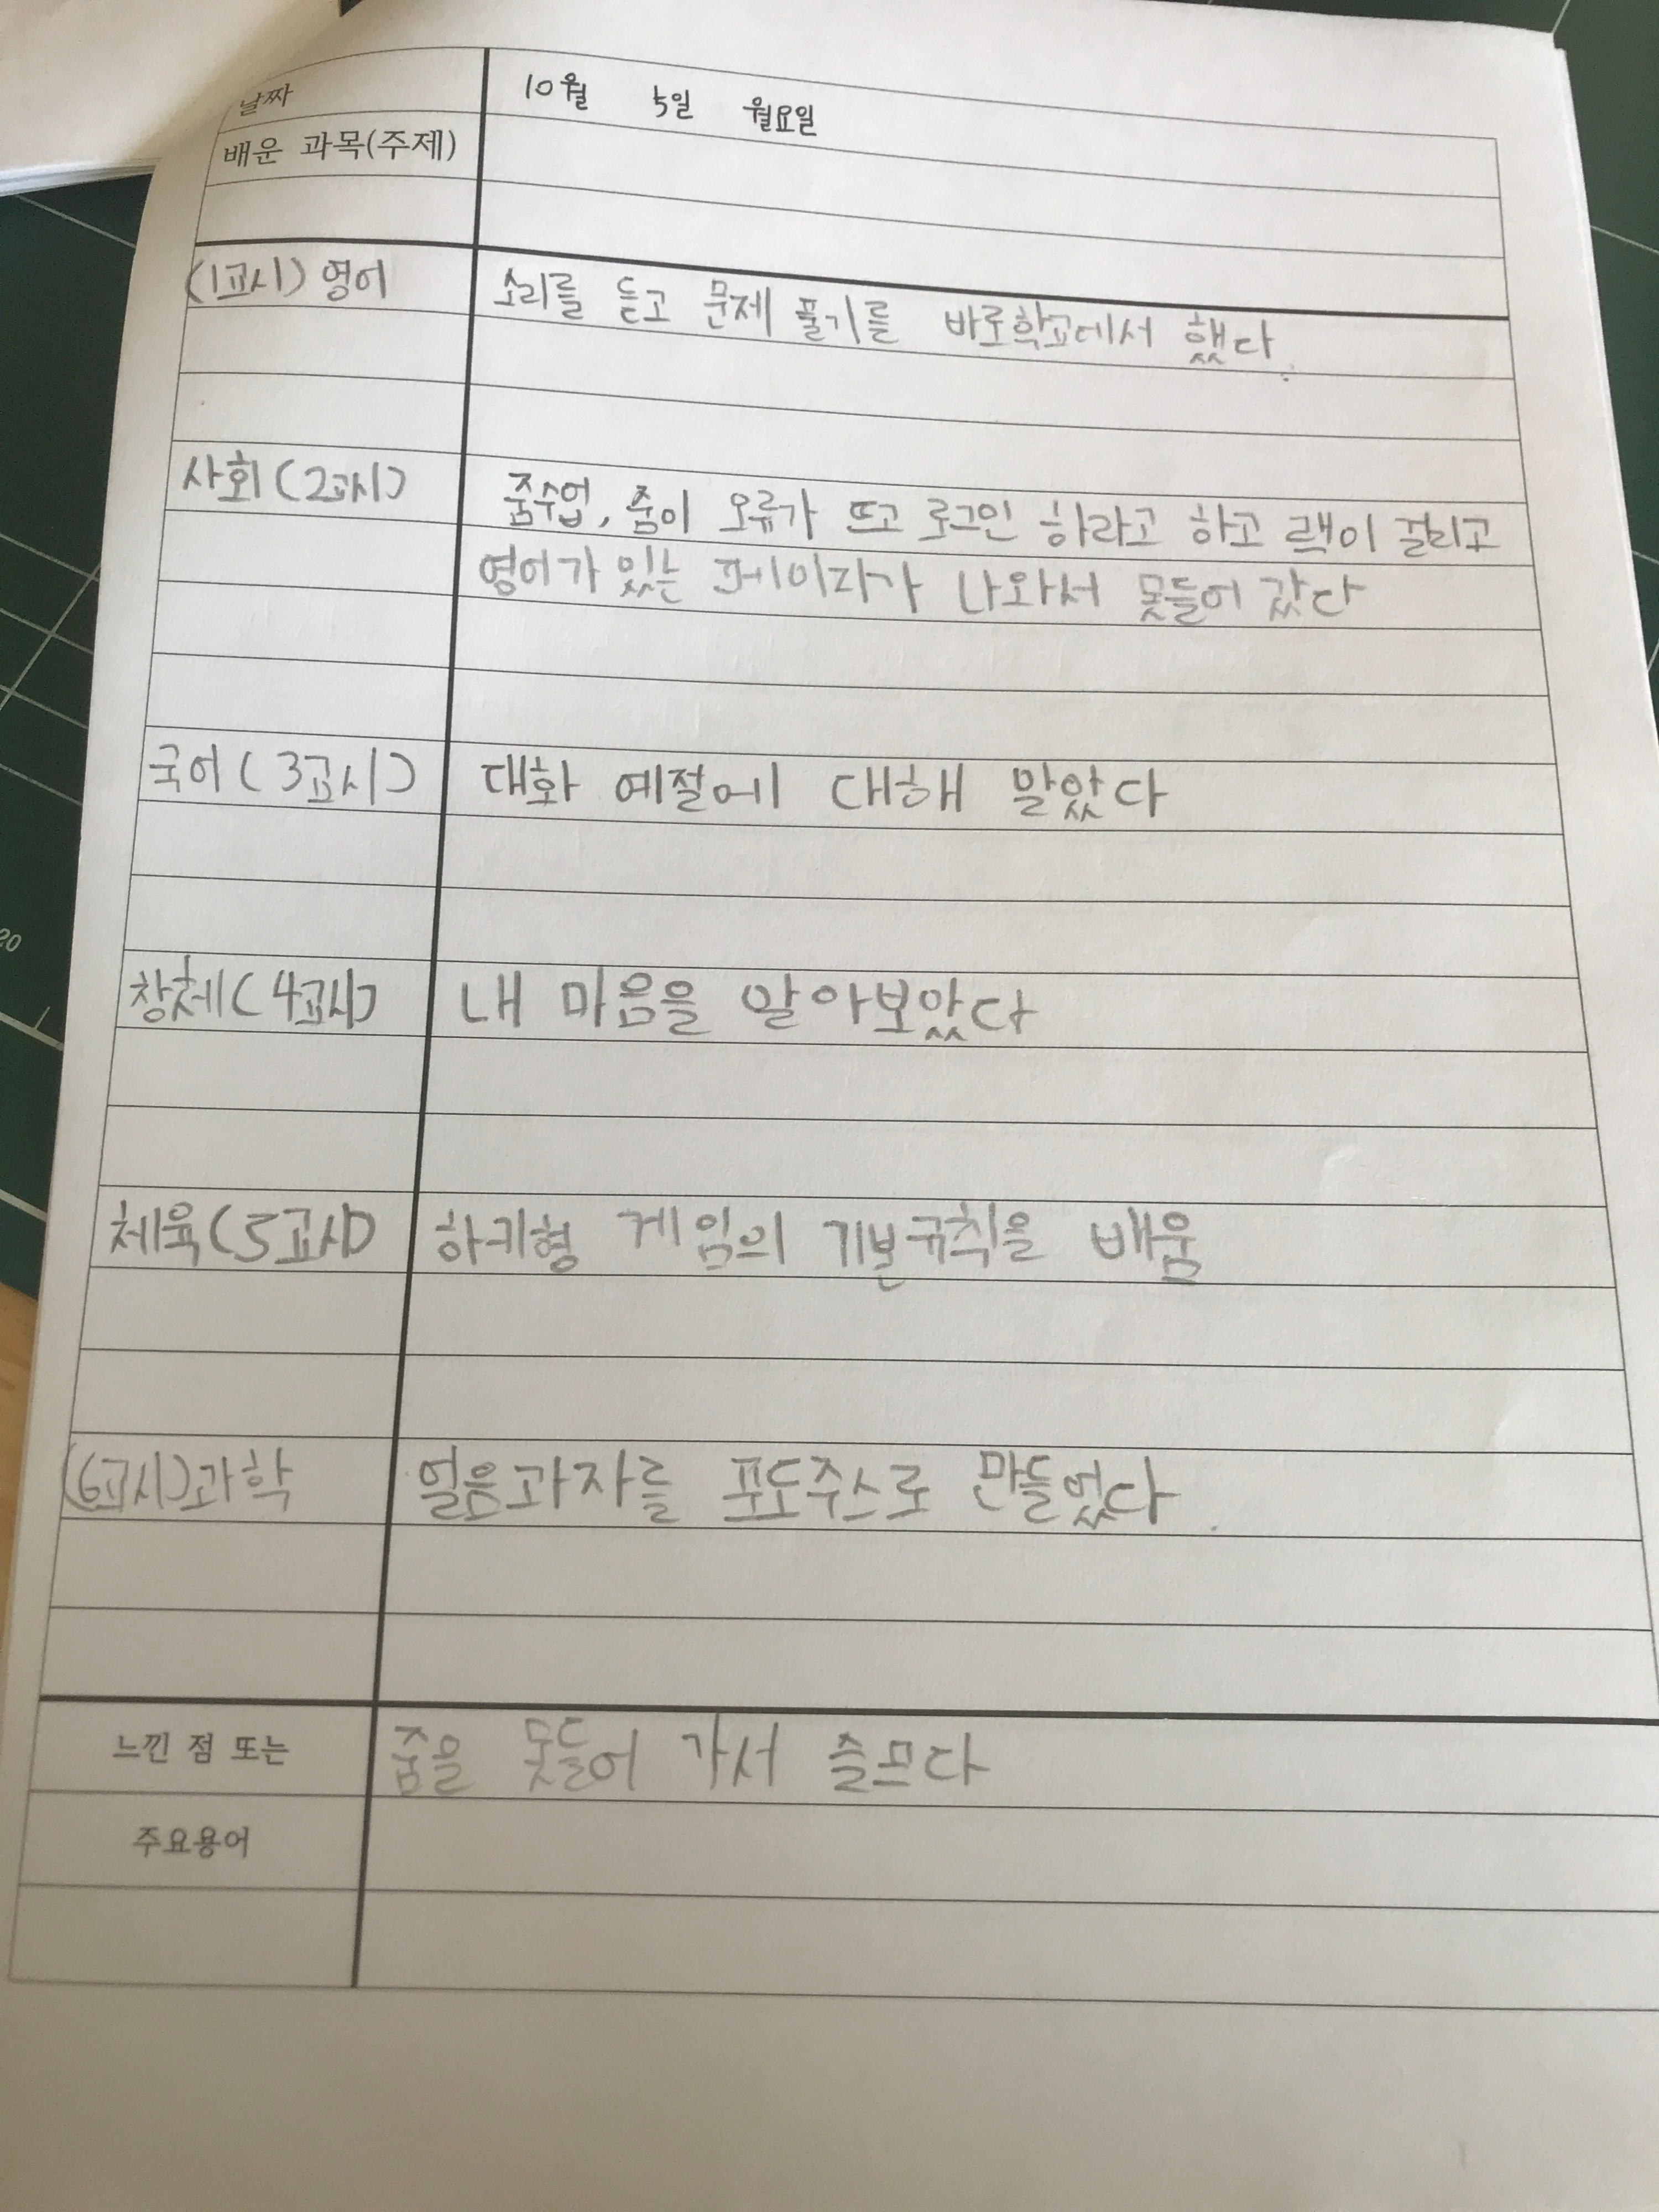 날짜 10월 5일 월요일
배운 과목(주제)
(1교시) 영어 소리를 듣고 문제 풀기를 바로학교에서 했다.
사회(2교시) 줌수업, 줌이 오류가 뜨고 로그인 하라고 하고 렉이 걸리고
영어가 있는 페이지가 나와서 못들어 갔다
국어(3교시) 대화 예절에 대해 알았다
창체(4교시) 내 마음을 알아보았다
체육(5교시) 하키형 게임의 기본규칙을 배움
(6교시)과학 얼음과자를 포도주스로 만들었다.
느낀 점 또는 줌을 못들어 가서 슬프다
주요용어
20